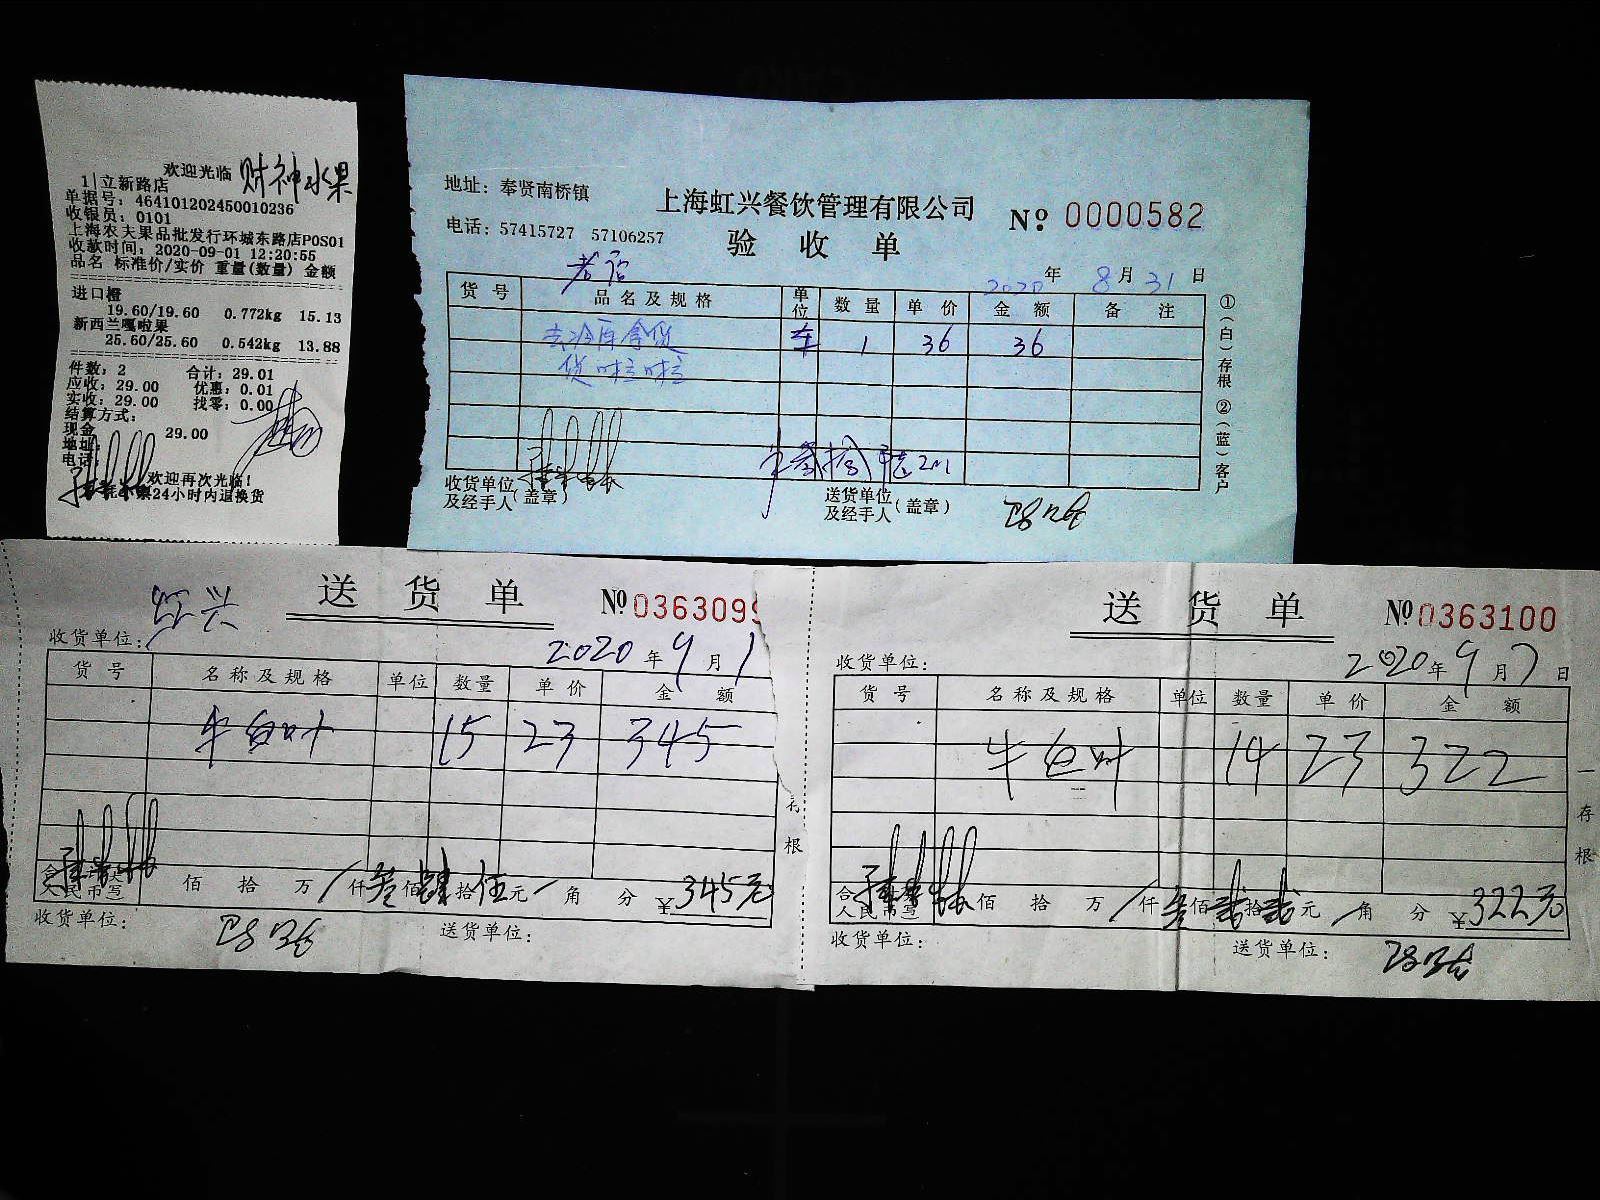 欢迎光临 财神水果
1|立新路店
单据号: 464101202450010236
收银员: 0101
上海农夫果品批发行环城东路店POS01
收款时间: 2020-09-01 12:20:55
品名 标准价/实价 重量(数量) 金额
进口橙
19.60/19.60 0.772kg 15.13
新西兰嘎啦果
25.60/25.60 0.542kg 13.88
件数: 2 合计: 29.01
应收: 29.00 优惠: 0.01
实收: 29.00 找零: 0.00
结算方式:
现金 29.00
地址:
电话:
欢迎再次光临!
凭小票24小时内退换货
地址: 奉贤南桥镇
上海虹兴餐饮管理有限公司
№: 0000582
电话: 57415727 57106257
验 收 单
老店
2020年8月31日
货号 品名及规格 单位 数量 单价 金额 备注
去冷库拿货 车 1 36 36
货啦啦
收货单位及经手人(盖章)
送货单位及经手人(盖章)
①(白)存根 ②(蓝)客户
送 货 单
№ 0363099
收货单位: 虹兴
2020年9月1
货号 名称及规格 单位 数量 单价 金额
牛百叶 15 23 345
人民币 佰 拾 万 仟 叁佰肆拾伍元 角 分 ¥345元
收货单位: 送货单位:
存根
送 货 单
№ 0363100
收货单位:
2020年9月7日
货号 名称及规格 单位 数量 单价 金额
牛百叶 14 23 322
人民币 佰 拾 万 仟 叁佰贰拾贰元 角 分 ¥322元
收货单位: 送货单位:
一存根